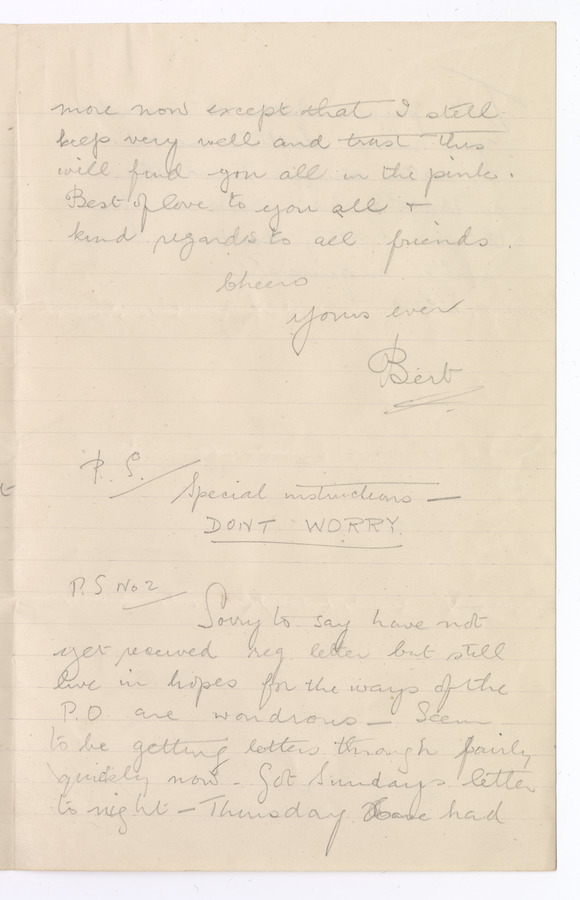 more now except that I still
keep very well and trust this
will find you all in the pink.
Best of love to you all +
kind regards to all friends.
Cheero
Yours ever
Bert
P.S.
Special instructions —
DONT WORRY.
P.S No 2
Sorry to say have not
yet received reg letter but still
live in hopes for the ways of the
P.O. are wondrous — Seem
to be getting letters through fairly
quickly now - Got Sundays letter
to night — Thursday Have had